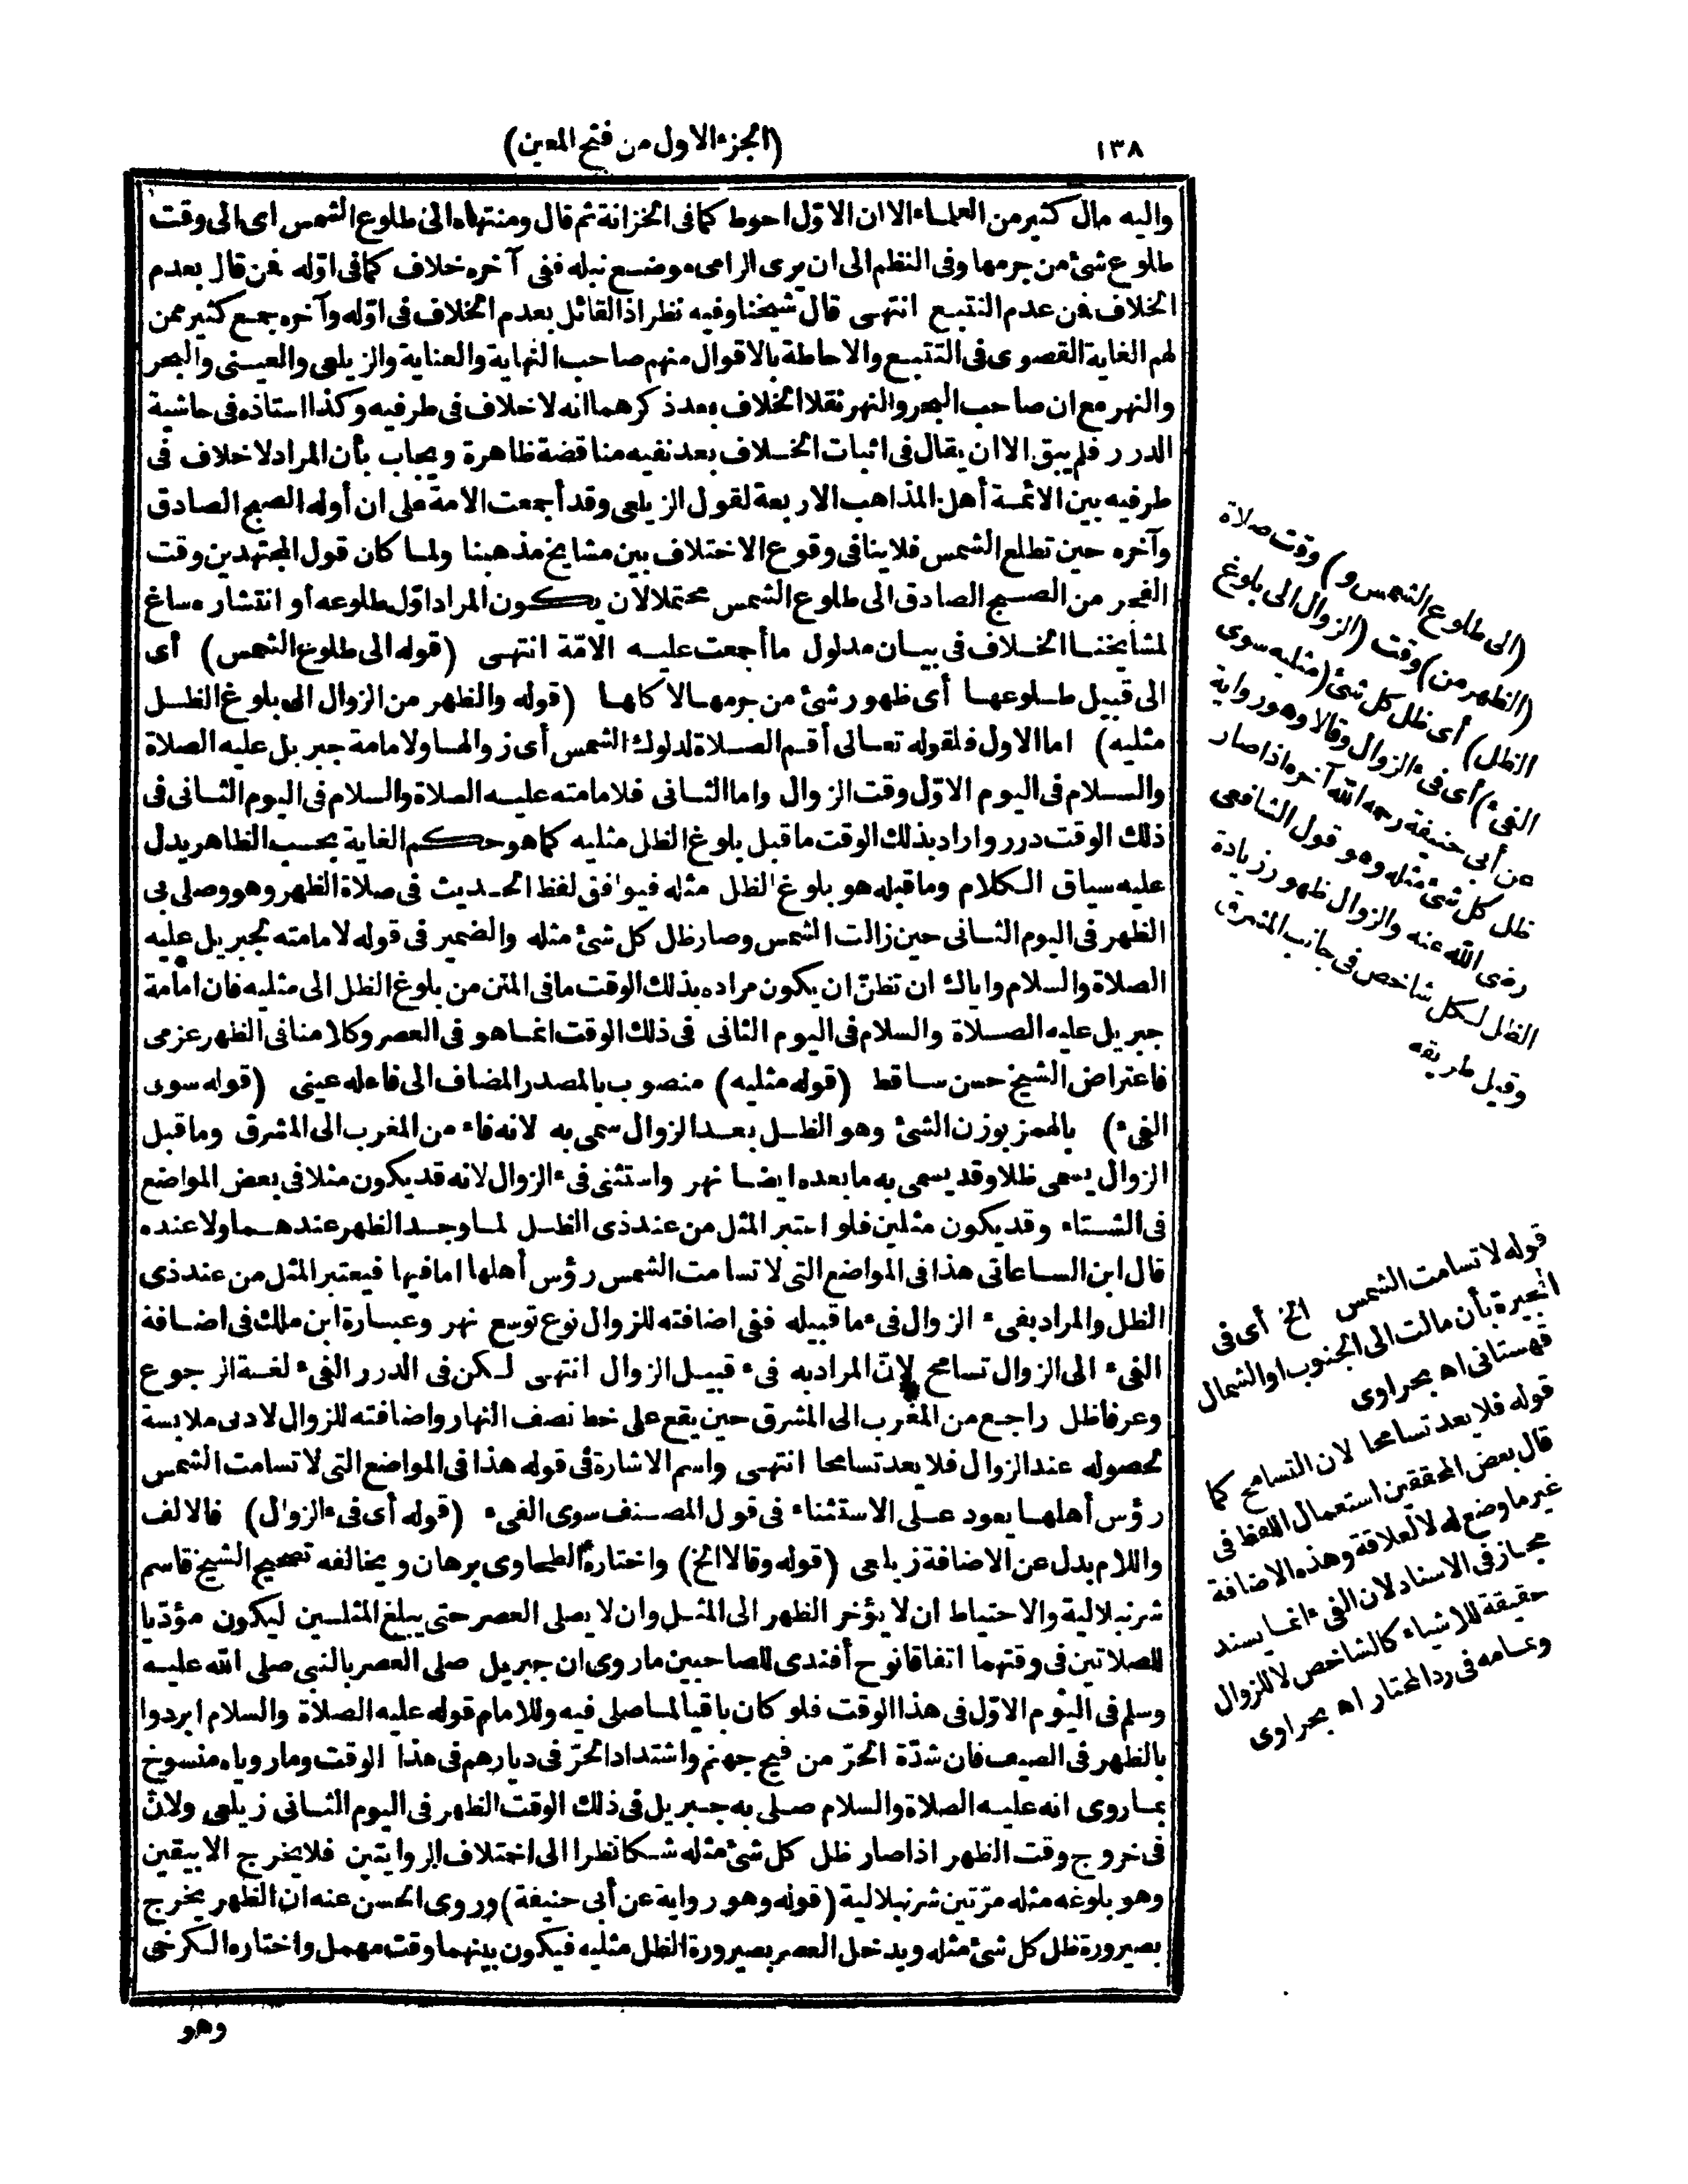 ١٣٨
(الجزء الاول من فتح المعين)
واليه مال كثير من العلماء الا ان الاوّل احوط كما فى الخزانة ثم قال ومنتهاه الى طلوع الشمس اى الى وقت
طلوع شئ من جرمها وفى النظم الى ان يرى الرامى موضع نبله ففى آخره خلاف كما فى اوّله فمن قال بعدم
الخلاف فمن عدم التتبع انتهى قال شيخنا وفيه نظر اذ القائل بعدم الخلاف فى اوّله وآخره جمع كثير ممن
لهم الغاية القصوى فى التتبع والاحاطة بالاقوال منهم صاحب النهاية والعناية والزيلعى والعينى والبحر
والنهر مع ان صاحب البحر والنهر نقلا الخلاف بعد ذكرهما انه لا خلاف فى طرفيه وكذا استاذه فى حاشية
الدرر فلم يبق الا ان يقال فى اثبات الخلاف بعد نفيه مناقضة ظاهرة ويجاب بأن المراد لا خلاف فى
طرفيه بين الائمة أهل المذاهب الاربعة لقول الزيلعى وقد أجمعت الامة على ان أوله الصبح الصادق
وآخره حين تطلع الشمس فلا ينافى وقوع الاختلاف بين مشايخ مذهبنا ولما كان قول المجتهدين وقت
الفجر من الصبح الصادق الى طلوع الشمس محتملا لان يكون المراد اوّل طلوعه أو انتشاره ساغ
لمشايخنا الخلاف فى بيان مدلول ما أجمعت عليه الامّة انتهى (قوله الى طلوع الشمس) أى
الى قبيل طلوعها أى ظهور شئ من جرمها لا كلها (قوله والظهر من الزوال الى بلوغ الظل
مثليه) اما الاول فلقوله تعالى أقم الصلاة لدلوك الشمس أى زوالها ولامامة جبريل عليه الصلاة
والسلام فى اليوم الاوّل وقت الزوال واما الثانى فلامامته عليه الصلاة والسلام فى اليوم الثانى فى
ذلك الوقت درر واراد بذلك الوقت ما قبل بلوغ الظل مثليه كما هو حكم الغاية بحسب الظاهر يدل
عليه سياق الكلام وما قبله هو بلوغ الظل مثله فيوافق لفظ الحديث فى صلاة الظهر وهو وصلى بى
الظهر فى اليوم الثانى حين زالت الشمس وصار ظل كل شئ مثله والضمير فى قوله لامامته لجبريل عليه
الصلاة والسلام واياك ان تظنّ ان يكون مراده بذلك الوقت ما فى المتن من بلوغ الظل الى مثليه فان امامة
جبريل عليه الصلاة والسلام فى اليوم الثانى فى ذلك الوقت انما هو فى العصر وكلامنا فى الظهر عزمى
فاعتراض الشيخ حسن ساقط (قوله مثليه) منصوب بالمصدر المضاف الى فاعله عينى (قوله سوى
الفىء) بالهمز بوزن الشئ وهو الظل بعد الزوال سمى به لانه فاء من المغرب الى المشرق وما قبل
الزوال يسمى ظلا وقد يسمى به ما بعده ايضا نهر واستثنى فىء الزوال لانه قد يكون مثلا فى بعض المواضع
فى الشتاء وقد يكون مثلين فلو اعتبر المثل من عند ذى الظل لما وجد الظهر عندهما ولا عنده
قال ابن الساعاتى هذا فى المواضع التى لا تسامت الشمس رؤس أهلها اما فيها فيعتبر المثل من عند ذى
الظل والمراد بفىء الزوال فىء ما قبيله ففى اضافته للزوال نوع توسع نهر وعبارة ابن ملك فى اضافة
الفىء الى الزوال تسامح لانّ المراد به فىء قبيل الزوال انتهى لكن فى الدرر الفىء لغة الرجوع
وعرفا ظل راجع من المغرب الى المشرق حين يقع على خط نصف النهار واضافته للزوال لادنى ملابسة
لحصوله عند الزوال فلا يعد تسامحا انتهى واسم الاشارة فى قوله هذا فى المواضع التى لا تسامت الشمس
رؤس أهلها يعود على الاستثناء فى قول المصنف سوى الفىء (قوله أى فىء الزوال) فالالف
واللام بدل عن الاضافة زيلعى (قوله وقالا الخ) واختاره الطحاوى برهان ويخالفه تصحيح الشيخ قاسم
شرنبلالية والاحتياط ان لا يؤخر الظهر الى المثل وان لا يصلى العصر حتى يبلغ المثلين ليكون مؤدّيا
للصلاتين فى وقتهما اتفاقا نوح أفندى للصاحبين ما روى ان جبريل صلى العصر بالنبى صلى الله عليه
وسلم فى اليوم الاوّل فى هذا الوقت فلو كان باقيا لما صلى فيه وللامام قوله عليه الصلاة والسلام ابردوا
بالظهر فى الصيف فان شدّة الحرّ من فيح جهنم واشتداد الحرّ فى ديارهم فى هذا الوقت وما روياه منسوخ
بما روى انه عليه الصلاة والسلام صلى به جبريل فى ذلك الوقت الظهر فى اليوم الثانى زيلعى ولانّ
فى خروج وقت الظهر اذا صار ظل كل شئ مثله شكا نظرا الى اختلاف الروايتين فلا يخرج الا بيقين
وهو بلوغه مثله مرّتين شرنبلالية (قوله وهو رواية عن أبى حنيفة) وروى الحسن عنه ان الظهر يخرج
بصيرورة ظل كل شئ مثله ويدخل العصر بصيرورة الظل مثليه فيكون بينهما وقت مهمل واختاره الكرخى
وهو
(الى طلوع الشمس و) وقت صلاة
(الظهر من) وقت (الزوال الى بلوغ
الظل) أى ظل كل شئ (مثليه سوى
الفىء) أى فىء الزوال وقالا وهو رواية
عن أبى حنيفة رحمه الله آخره اذا صار
ظل كل شئ مثله وهو قول الشافعى
رضى الله عنه والزوال ظهور زيادة
الظل لكل شاخص فى جانب المشرق
وقيل طريقه
قوله لا تسامت الشمس الخ أى فى
الجيرة بأن مالت الى الجنوب او الشمال
قهستانى اه بحراوى
قوله فلا يعد تسامحا لان التسامح كما
قال بعض المحققين استعمال اللفظ فى
غير ما وضع له لا لعلاقة وهذه الاضافة
مجاز فى الاسناد لان الفىء انما يسند
حقيقة للاشياء كالشاخص لا للزوال
وتمامه فى رد المحتار اه بحراوى